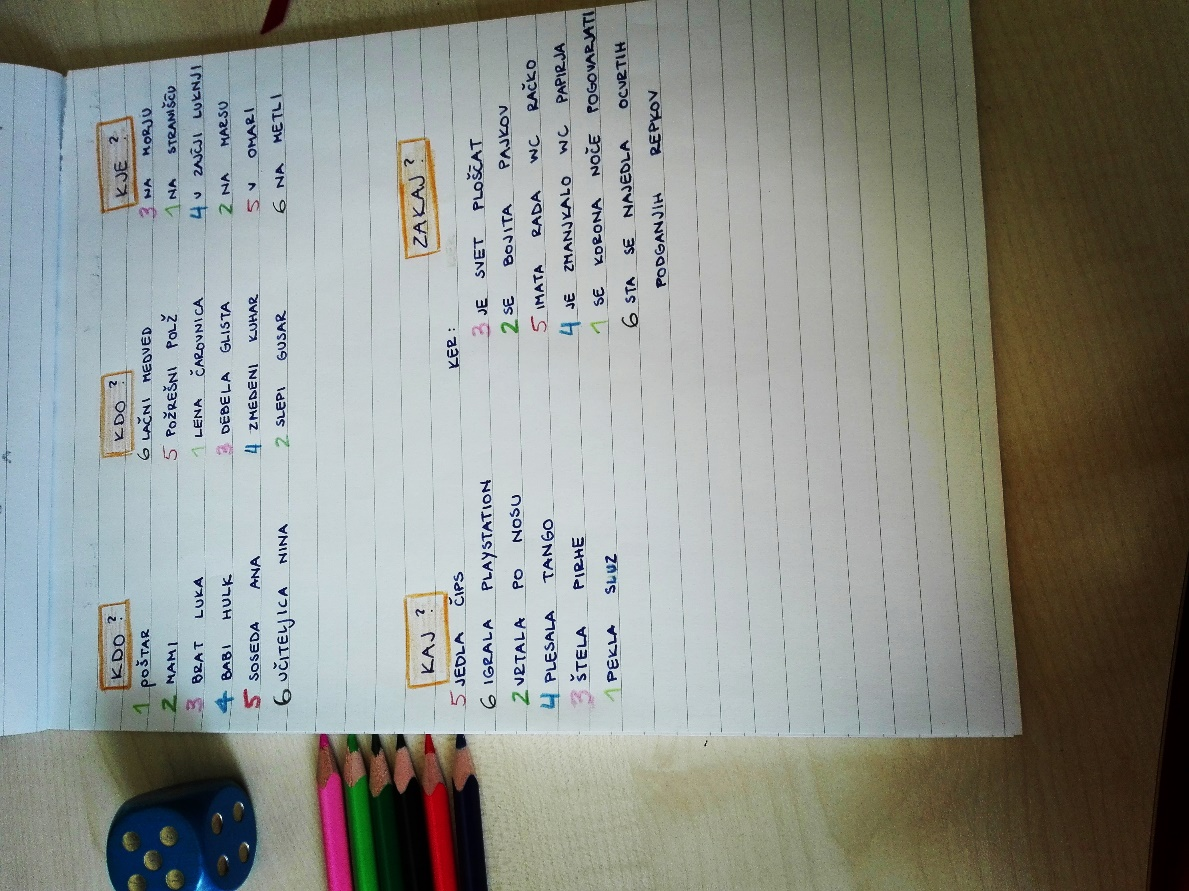 KDO?
1 POŠTAR
2 MAMI
3 BRAT LUKA
4 BABI HULK
5 SOSEDA ANA
6 UČITELJICA NINA
KDO?
6 LAČNI MEDVED
5 POŽREŠNI POLŽ
1 LENA ČAROVNICA
3 DEBELA GLISTA
4 ZMEDENI KUHAR
2 SLEPI GUSAR
KJE?
3 NA MORJU
1 NA STRANIŠČU
4 V ZAJČJI LUKNJI
2 NA MARSU
5 V OMARI
6 NA METLI
KAJ?
5 JEDLA ČIPS
6 IGRALA PLAYSTATION
2 VRTALA PO NOSU
4 PLESALA TANGO
3 ŠTELA PIRHE
1 PEKLA SLUZ
ZAKAJ?
KER:
3 JE SVET PLOŠČAT
2 SE BOJITA PAJKOV
5 IMATA RADA WC RAČKO
4 JE ZMANJKALO WC PAPIRJA
1 SE KORONA NOČE POGOVARJATI
6 STA SE NAJEDLA OCVRTIH
PODGANJIH REPKOV